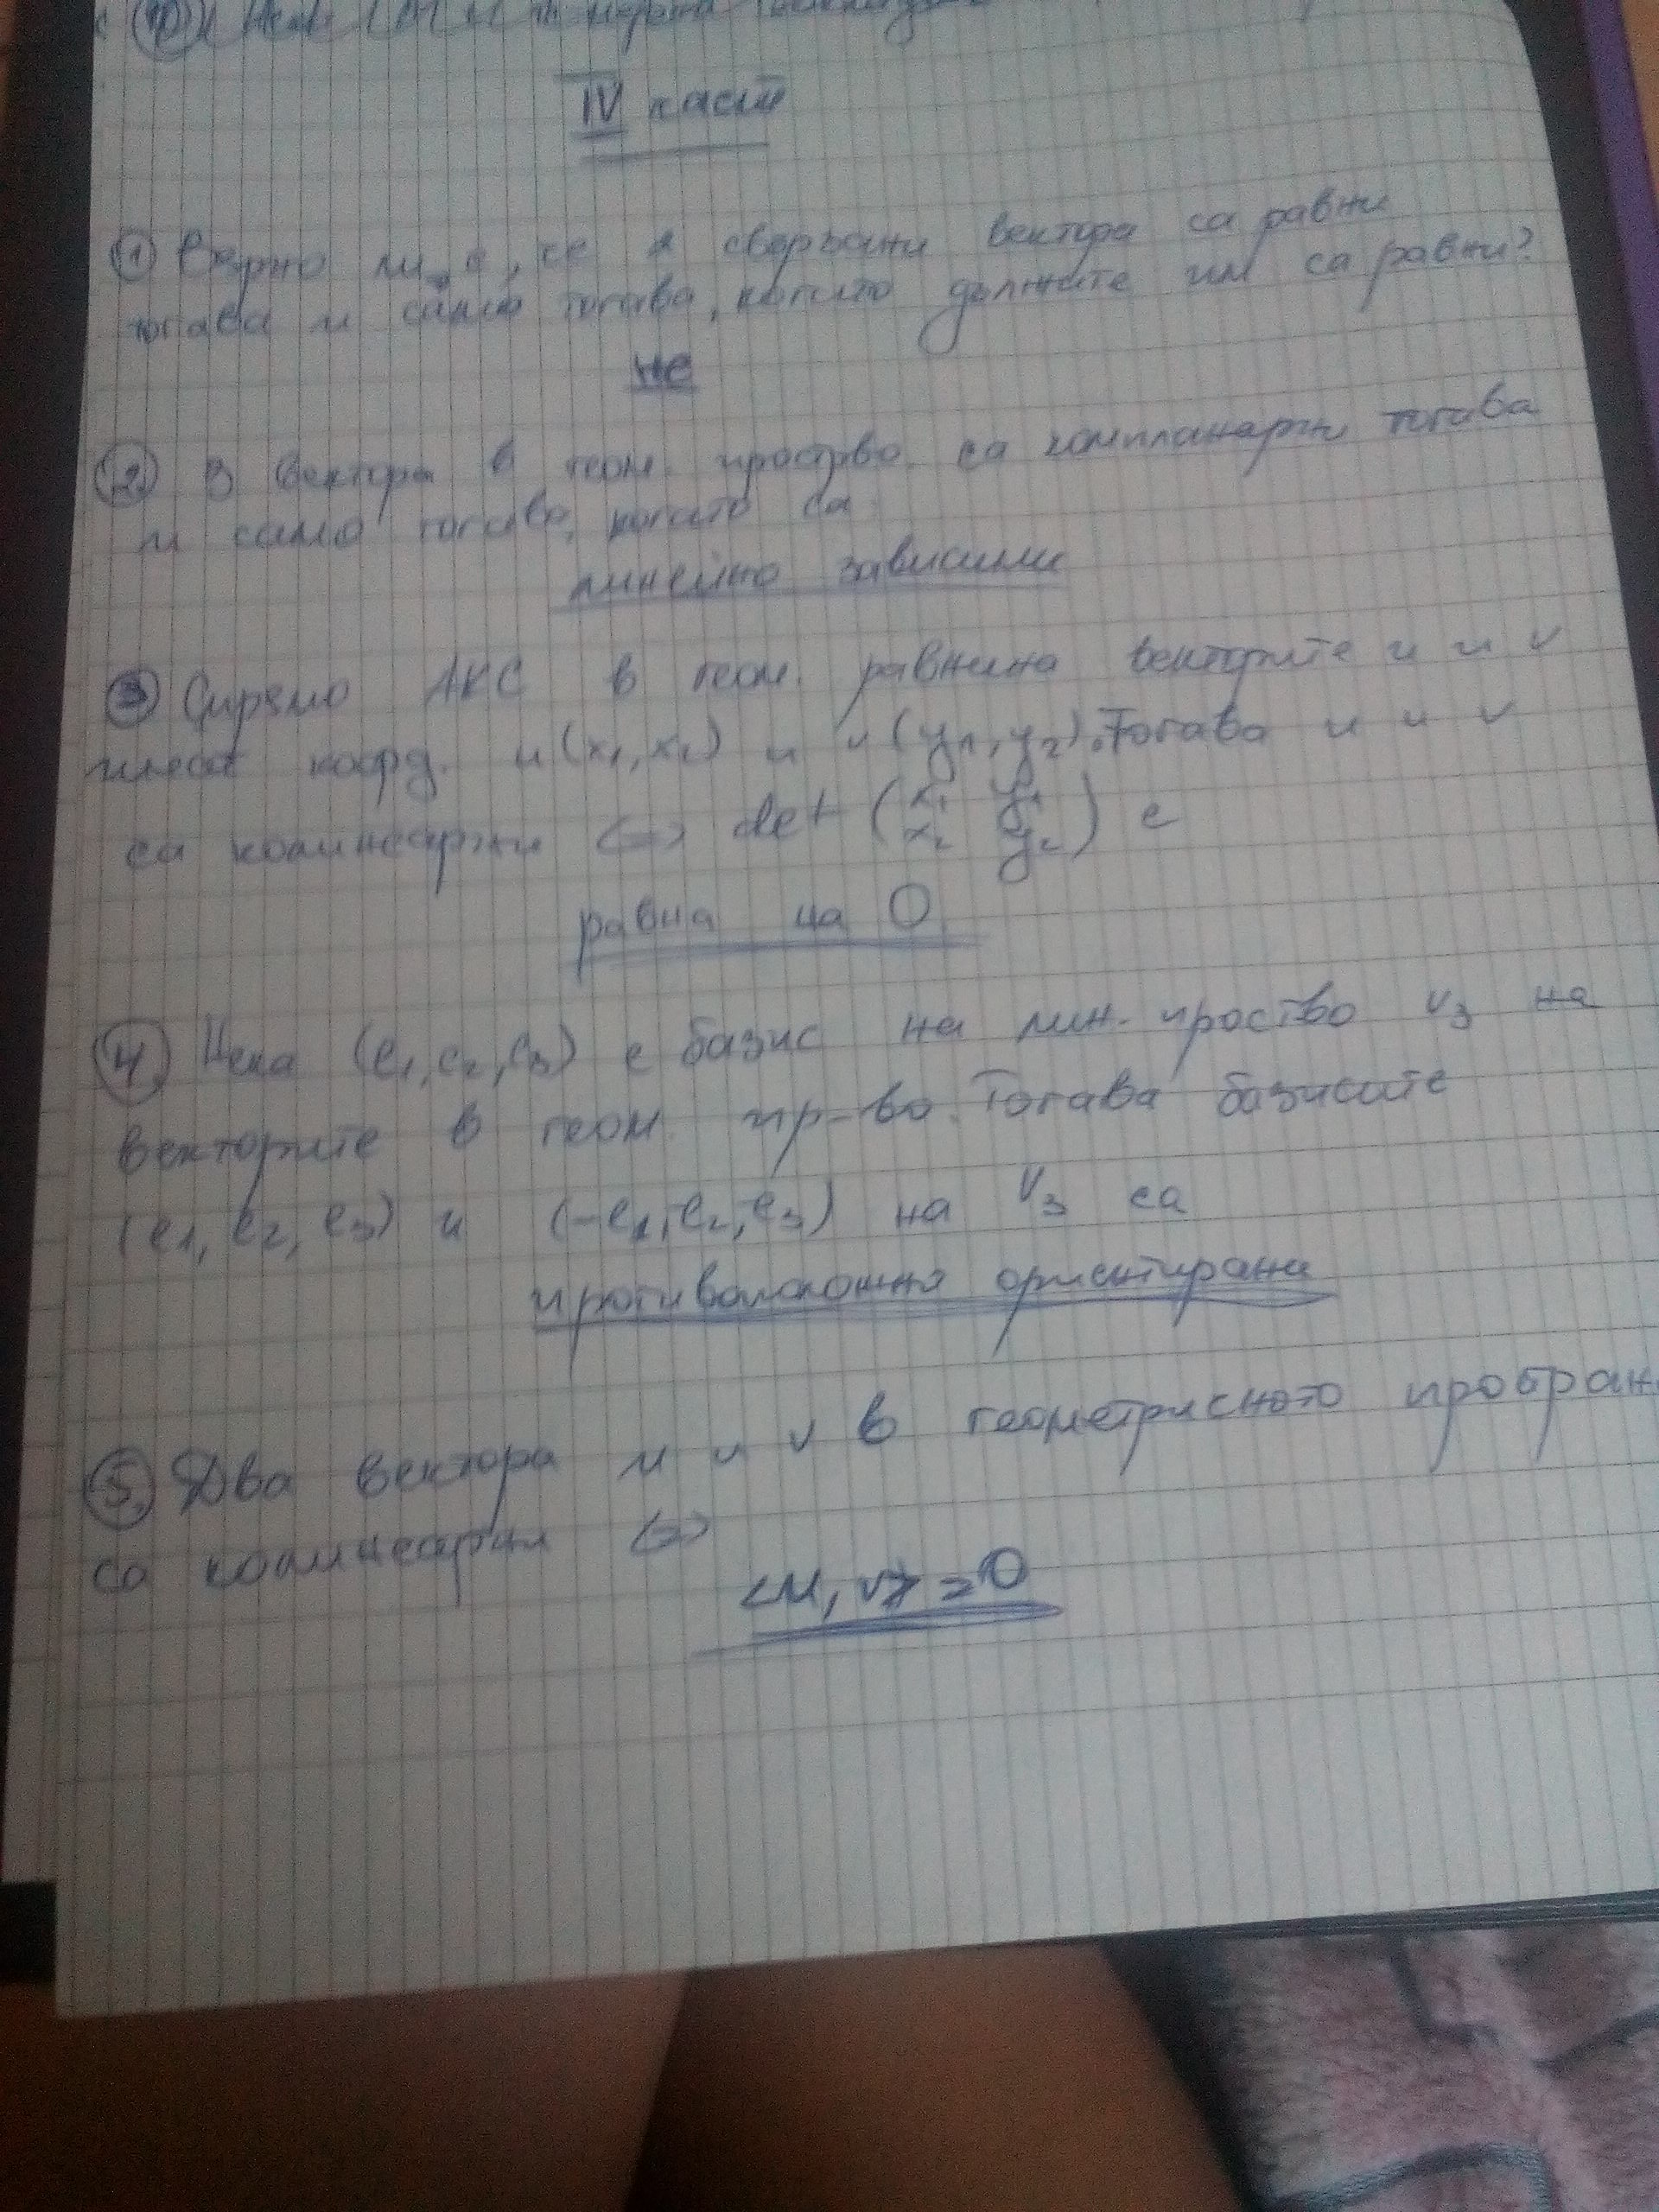 IV част
① Вярно ли е, че 2 свързани вектора са равни
тогава и само тогава, когато дължините им са равни?
не
② 3 вектора в геом. простр-во са компланарни тогава
и само тогава, когато са
линейно зависими
③ Спрямо АКС в геом. равнина векторите u и v
имат коорд. u(x1, x2) и v(y1, y2). Тогава u и v
са колинеарни <=> det (x1 y1
x2 y2) е
равна на 0
④ Нека (e1, e2, e3) е базис на лин. простр-во V3 на
векторите в геом. пр-во. Тогава базисите
(e1, e2, e3) и (-e1, e2, e3) на V3 са
противоположно ориентирани
⑤ Два вектора u и v в геометричното
са колинеарни <=>